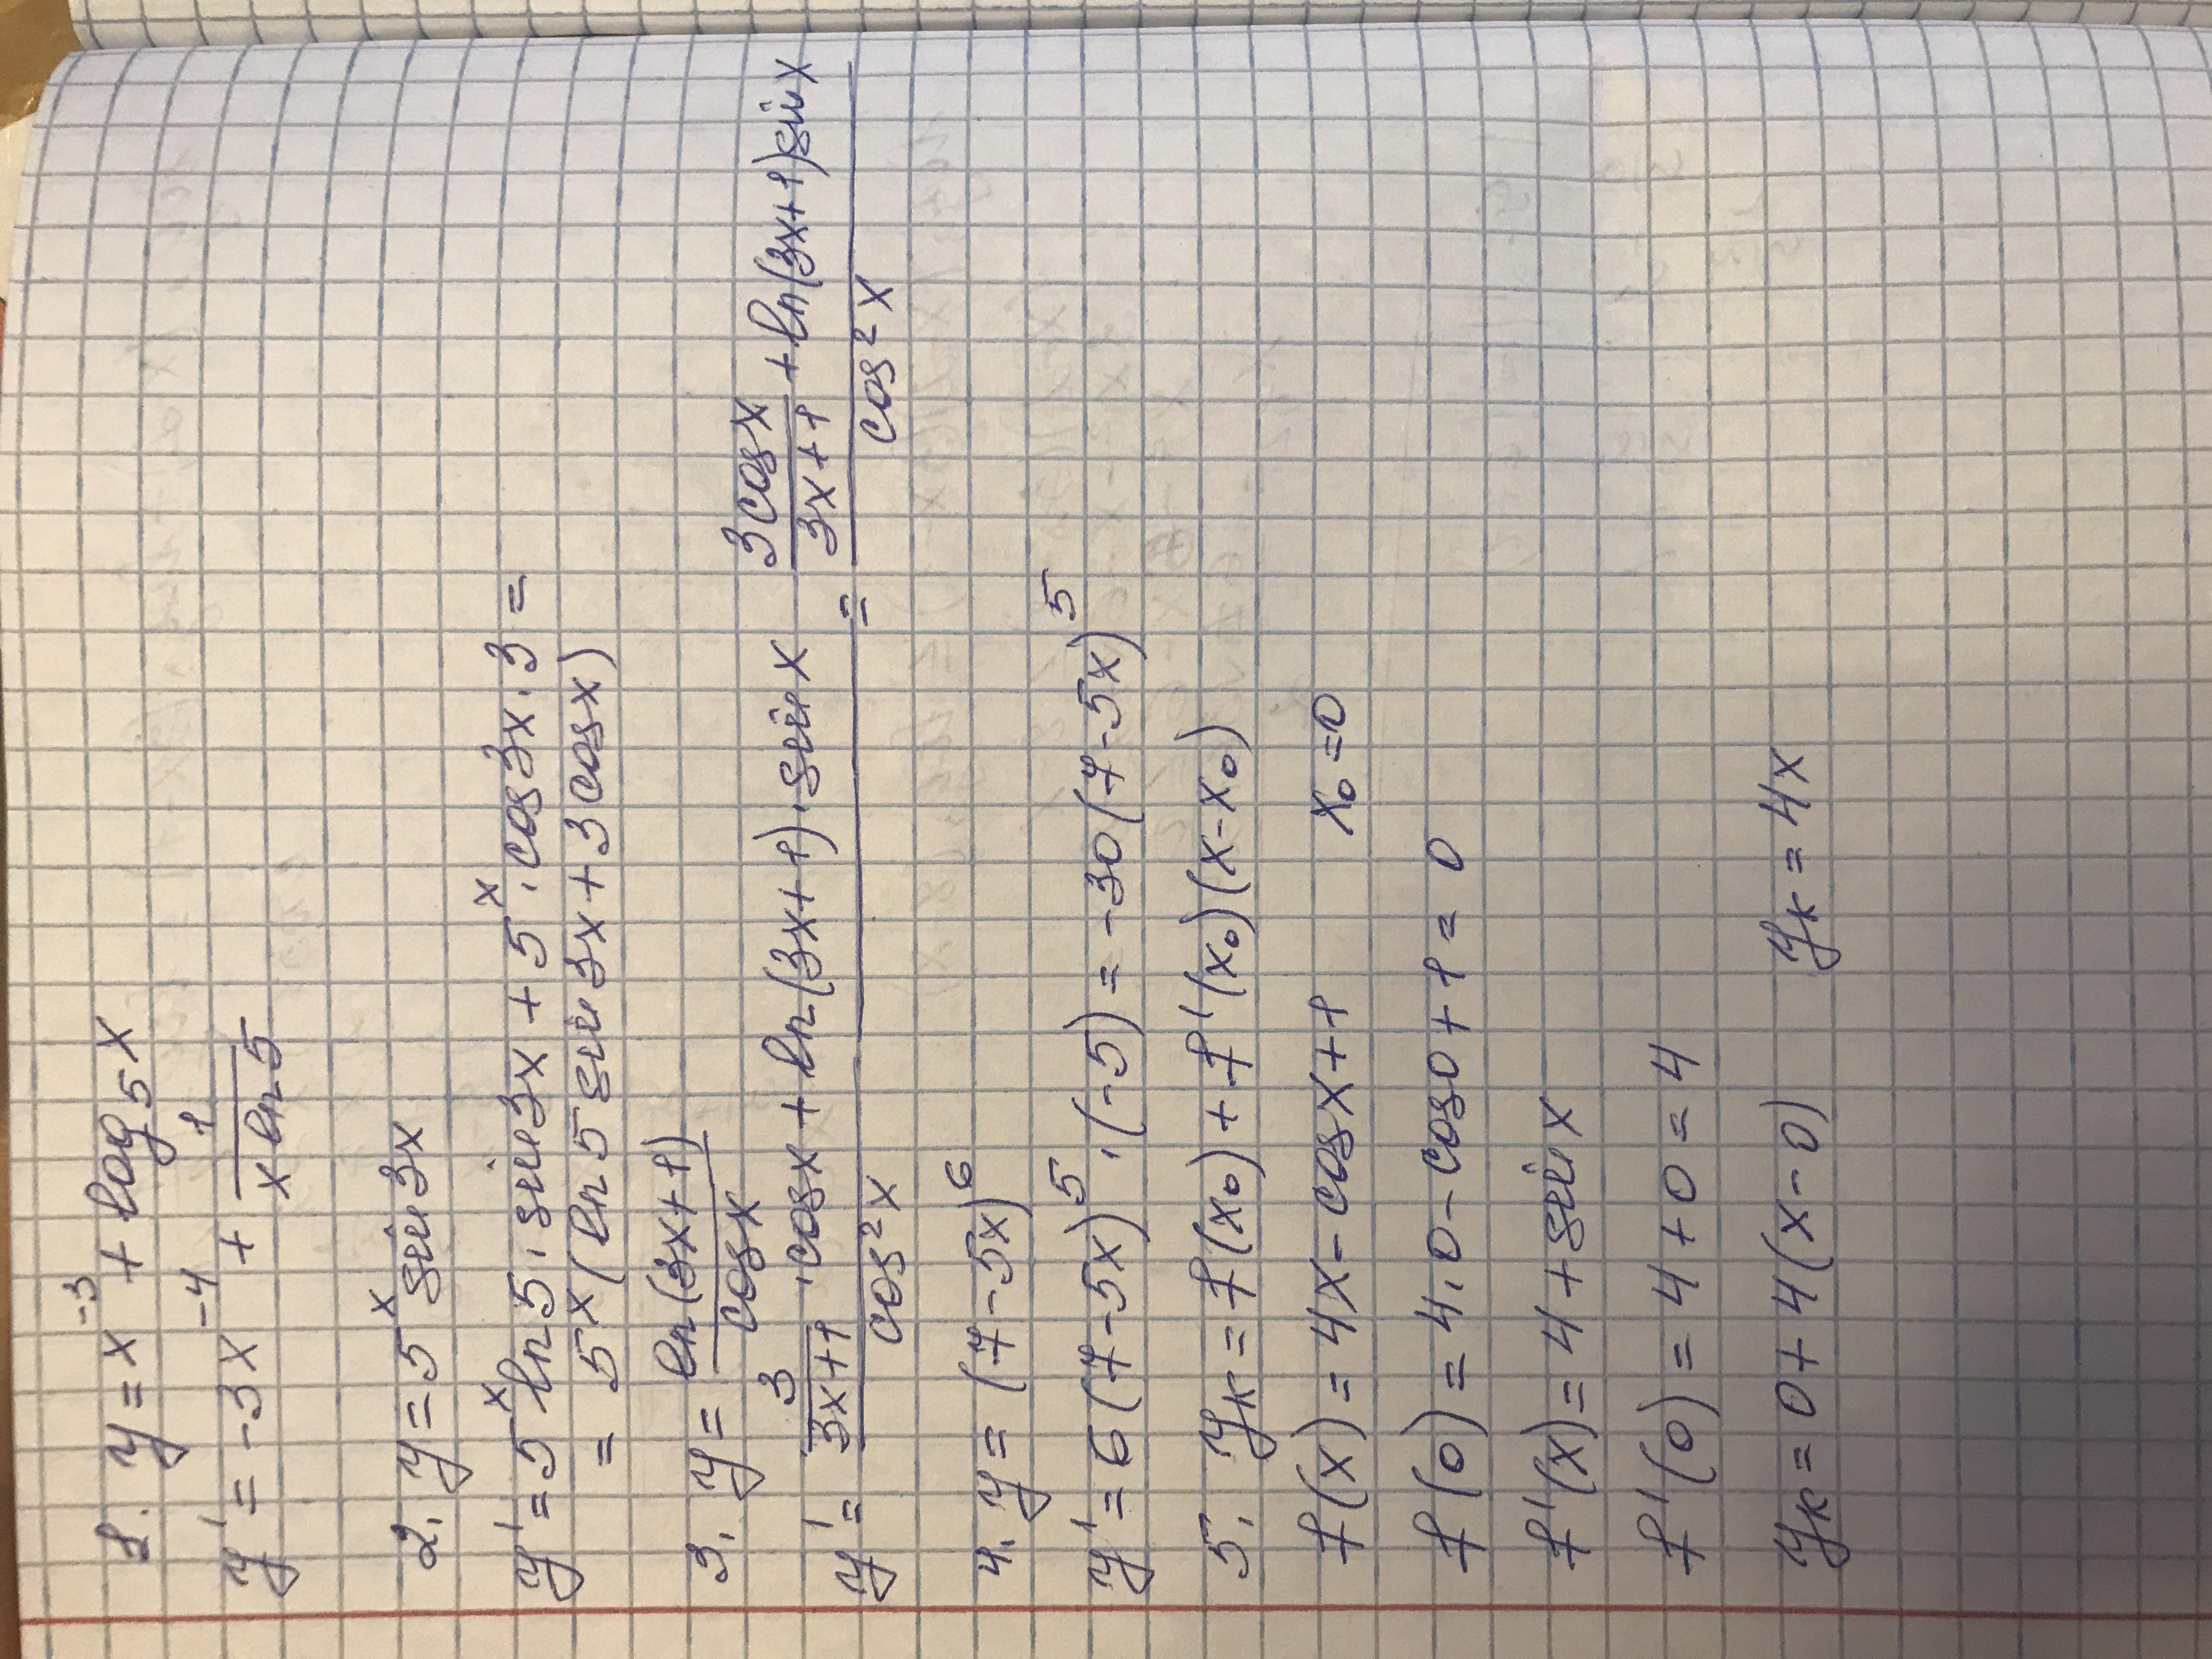 1. y = x⁻³ + log₅x
y' = -3x⁻⁴ + 1/(x ln5)
2. y = 5ˣ sin3x
y' = 5ˣ ln5 · sin3x + 5ˣ · cos3x · 3 =
= 5ˣ(ln5 sin3x + 3cosx)
3. y = ln(3x+1)/cosx
y' = (3/(3x+1) · cosx + ln(3x+1) · sinx)/cos²x = (3cosx/(3x+1) + ln(3x+1)sinx)/cos²x
4. y = (7-5x)⁶
y' = 6(7-5x)⁵ · (-5) = -30(7-5x)⁵
5. yк = f(x₀) + f'(x₀)(x-x₀)
f(x) = 4x - cosx + 1 x₀ = 0
f(0) = 4·0 - cos0 + 1 = 0
f'(x) = 4 + sinx
f'(0) = 4 + 0 = 4
yк = 0 + 4(x-0) yк = 4x